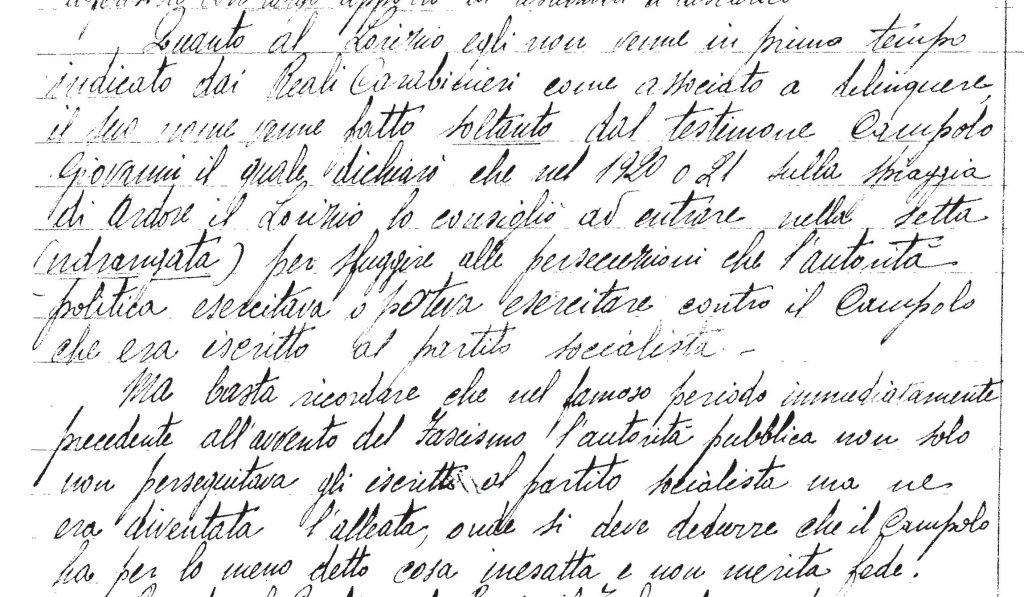 Quanto al Lorizio egli non venne in primo tempo
indicato dai Reali Carabinieri come associato a delinquere,
il suo nome venne fatto soltanto dal testimone Campolo
Giovanni il quale dichiarò che nel 1920 o 21 sulla spiaggia
di Ardore il Lorizio lo consigliò ad entrare nella setta
(ndrangata) per sfuggire alle persecuzioni che l'autorità
politica esercitava o poteva esercitare contro il Campolo
che era iscritto al partito socialista -
Ma basta ricordare che nel famoso periodo immediatamente
precedente all'avvento del Fascismo l'autorità pubblica non solo
non perseguitava gli iscritti al partito socialista ma ne
era diventata l'alleata, onde si deve dedurre che il Campolo
ha per lo meno detto cosa inesatta e non merita fede.